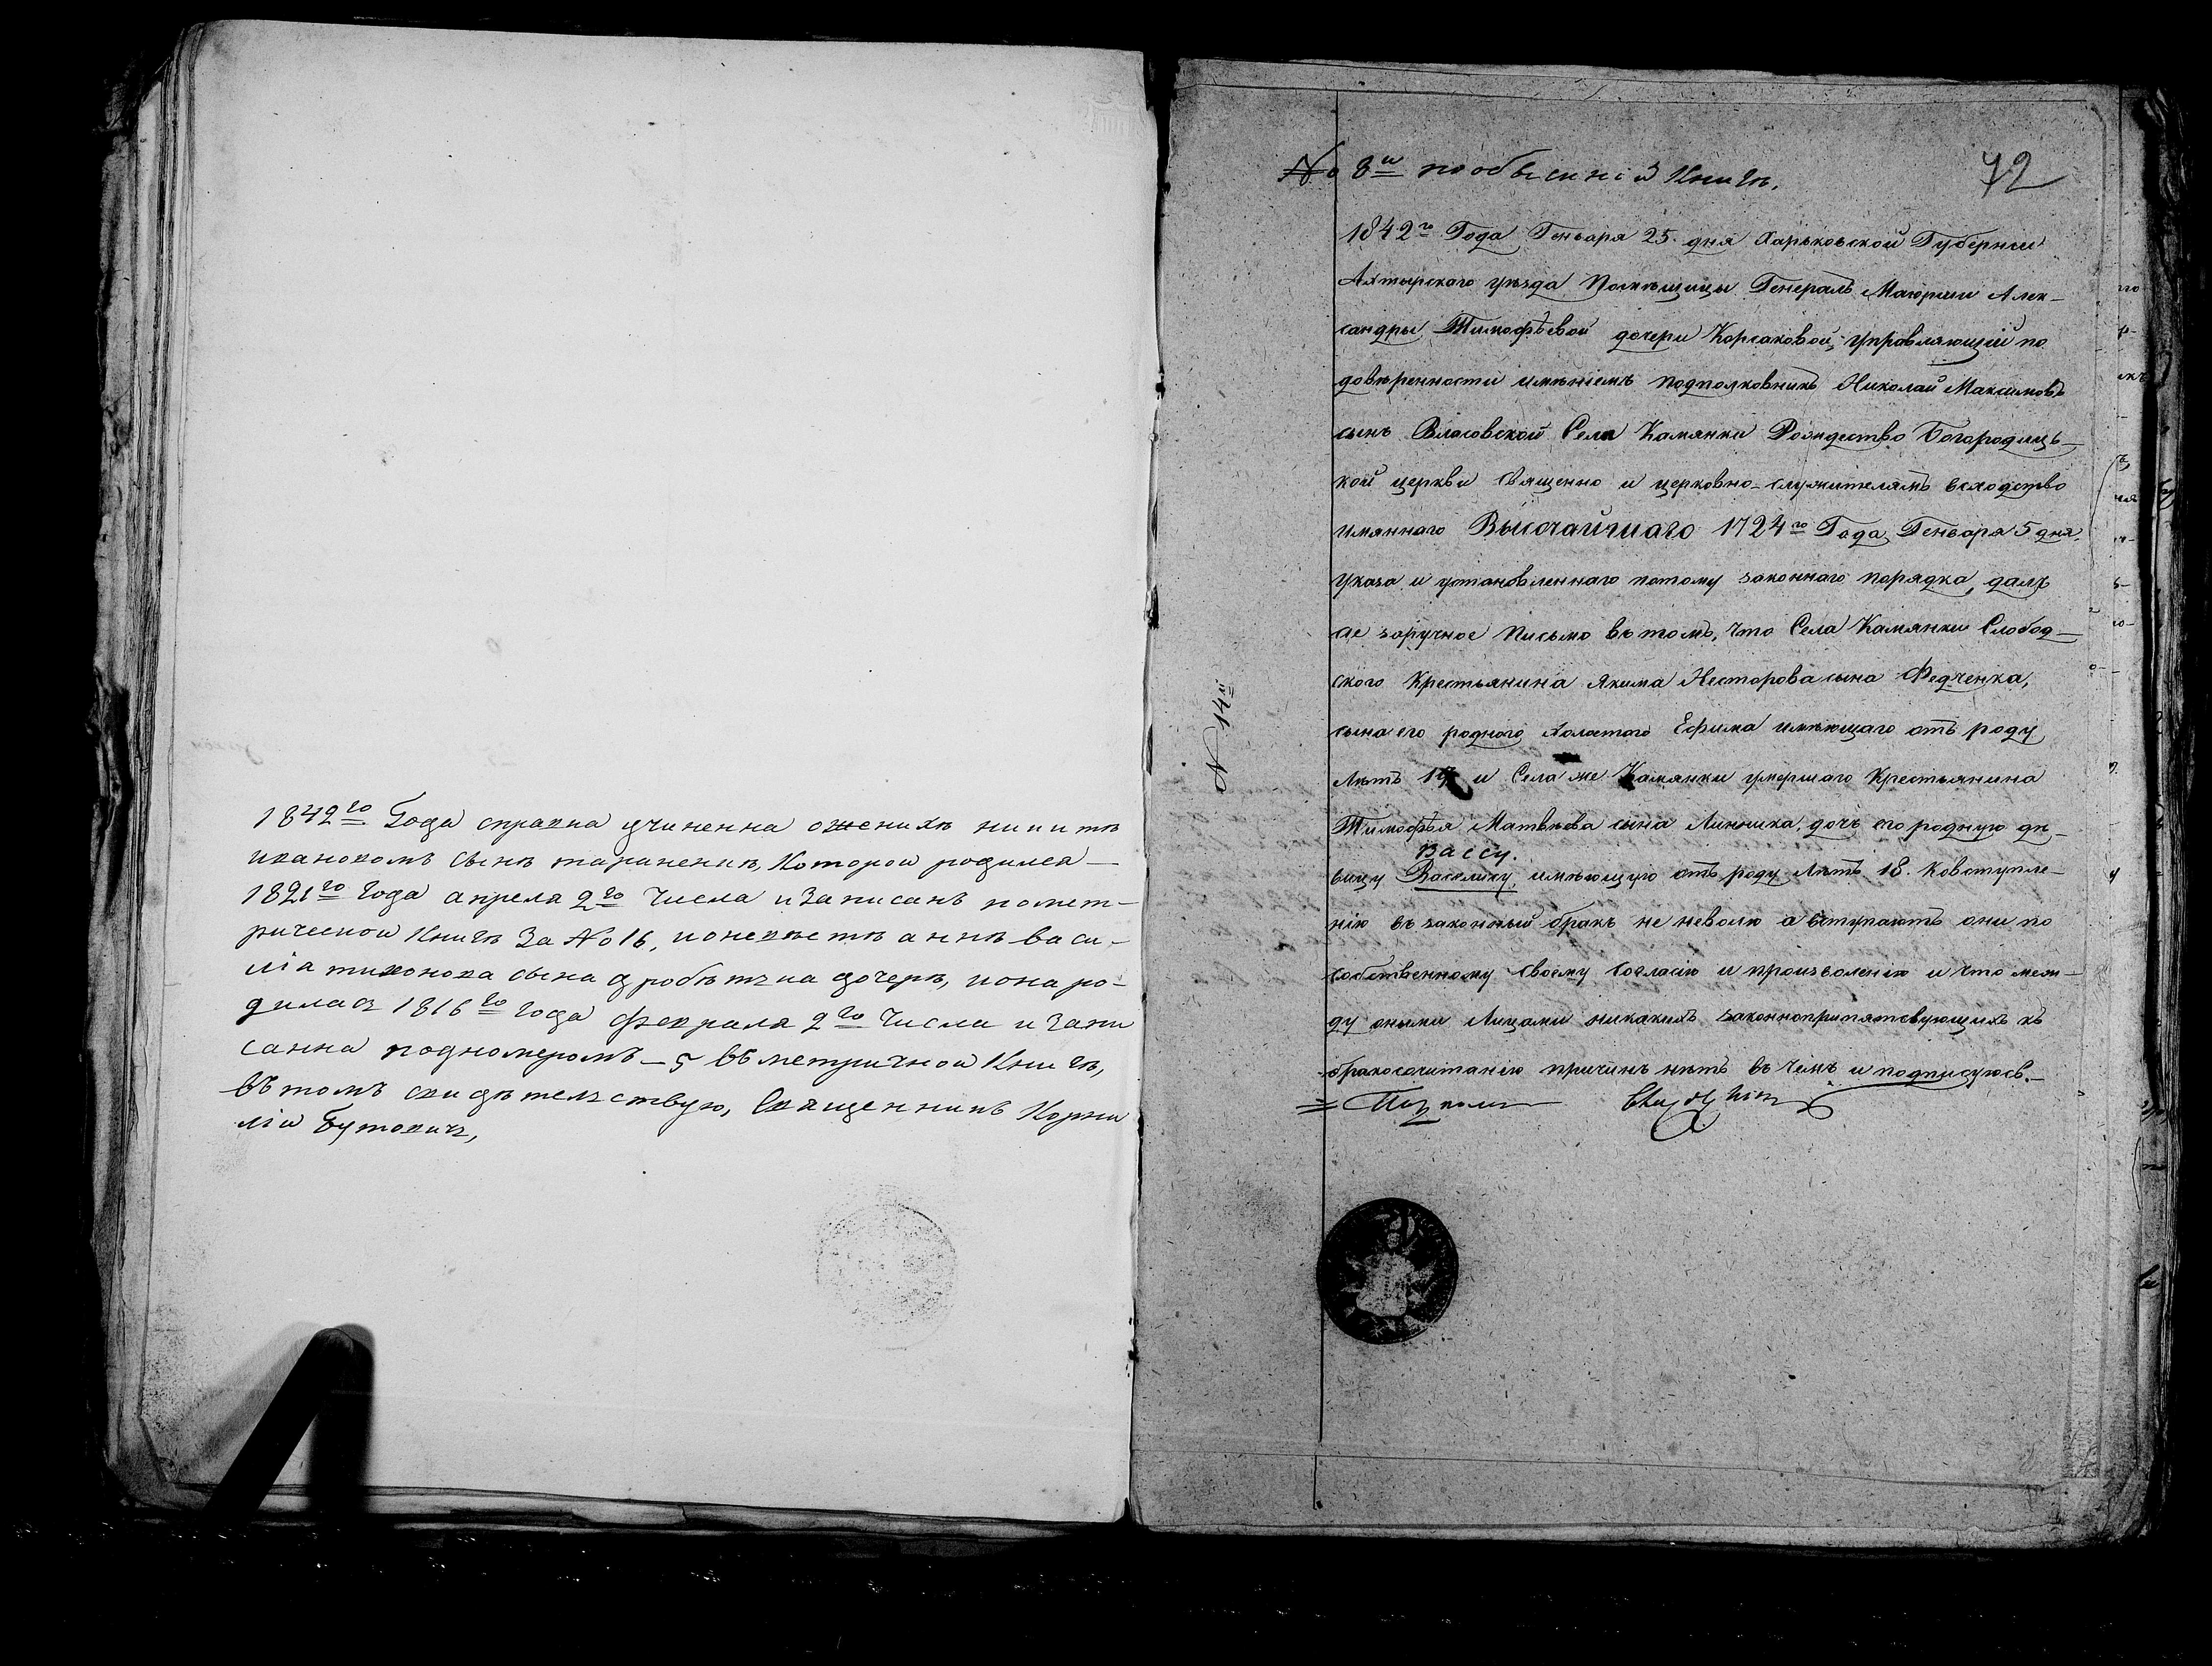 1842го Года справка учиненна ожених никитѣ
ивановомъ сынѣ тараненкѣ, которои родился
1821го года апреля 2го числа и записанъ помет-
рическои книгѣ за No 16, и оневѣстѣ аннѣ васи-
лія тихонова сына дробѣтька дочерѣ, и она ро-
дилась 1816го года февраля 2го числа и запи
санна подномеромъ - 5 въ метричнои книгѣ,
въ томъ свидѣтельствую, священникъ Корни
лій Бутовичъ,
No 8й пообысній книгѣ.
72
1842го Года Генваря 25 дня Харьковской Губерніи
Ахтырскаго уѣзда Помѣщицы Генералъ Маіорши Алек-
сандры Тимофѣевой дочери Корсаковой, управляющій по
довѣренности имѣніемъ подполковникъ Николай Максимовъ
сынъ Власовской Села Камянки Рождество Богородиць-
кой церкви священно и церковно-служителямъ всходство
имяннаго Высочайшаго 1724го Года Генваря 5 дня
указа и установленнаго потому законнаго порядка, далъ
сіе заручное письмо въ томъ, что Села Камянки Слобод-
ского крестьянина Якима Несторова сына Федченка,
сына его роднаго холостаго Ефима имѣющаго отъ роду
лѣтъ 19 и Села же Камянки умершаго крестьянина
Тимофѣя Матвѣева сына Линника, дочь его родную дѣ-
Вассу.
вицу Василису, имѣющую отъ роду лѣтъ 18. ковступле-
нію въ законный бракъ не неволю а вступаютъ они по
собственному своему согласію и произволенію и что меж-
ду оными лицами никакихъ законнопрепятсвующихъ къ
бракосочитанію причинъ нѣтъ въ чемъ и подписуюсь.-
N 14й